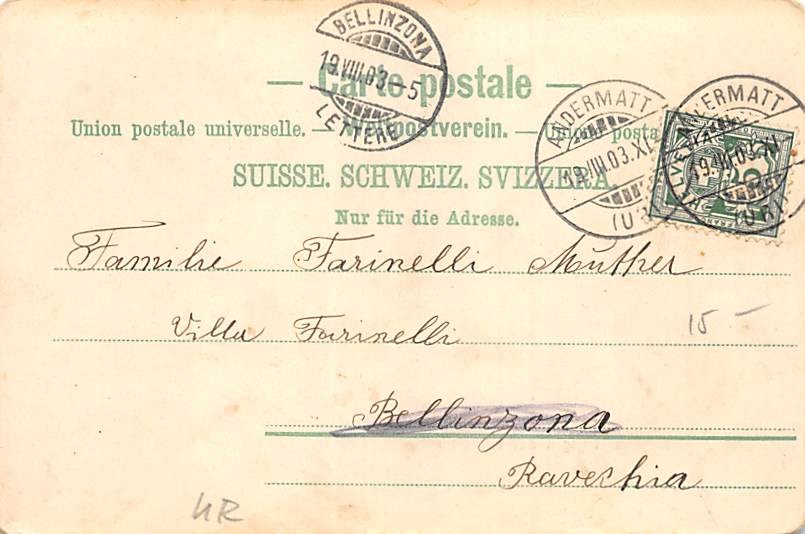 BELLINZONA
19.VIII.03–5
LETTERE
— Carte postale —
ANDERMATT
19.VIII.03.XI
(UR
ANDERMATT
19.VIII.03.XI
(UR)
HELVETIA
5
FRANCO
Union postale universelle. — Weltpostverein. — Unione posta
SUISSE. SCHWEIZ. SVIZZERA.
Nur für die Adresse.
Familie Farinelli Muther
Villa Farinelli
15 –
Bellinzona
Ravechia
UR